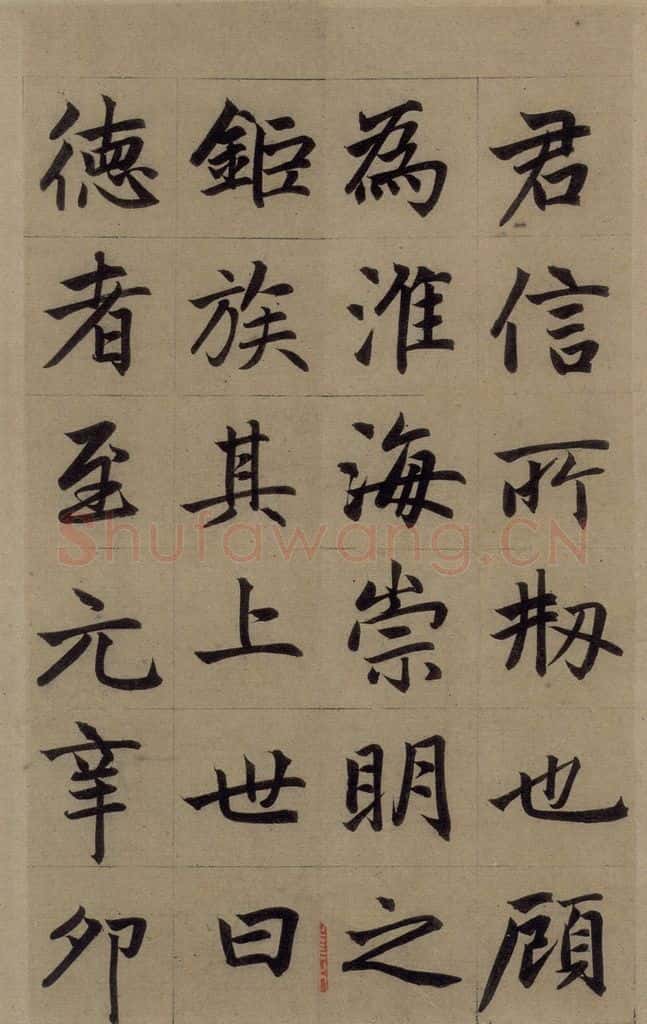 君信所刱也顾
為淮海崇明之
鉅族其上世曰
德者至元辛卯
Shufawang.CN